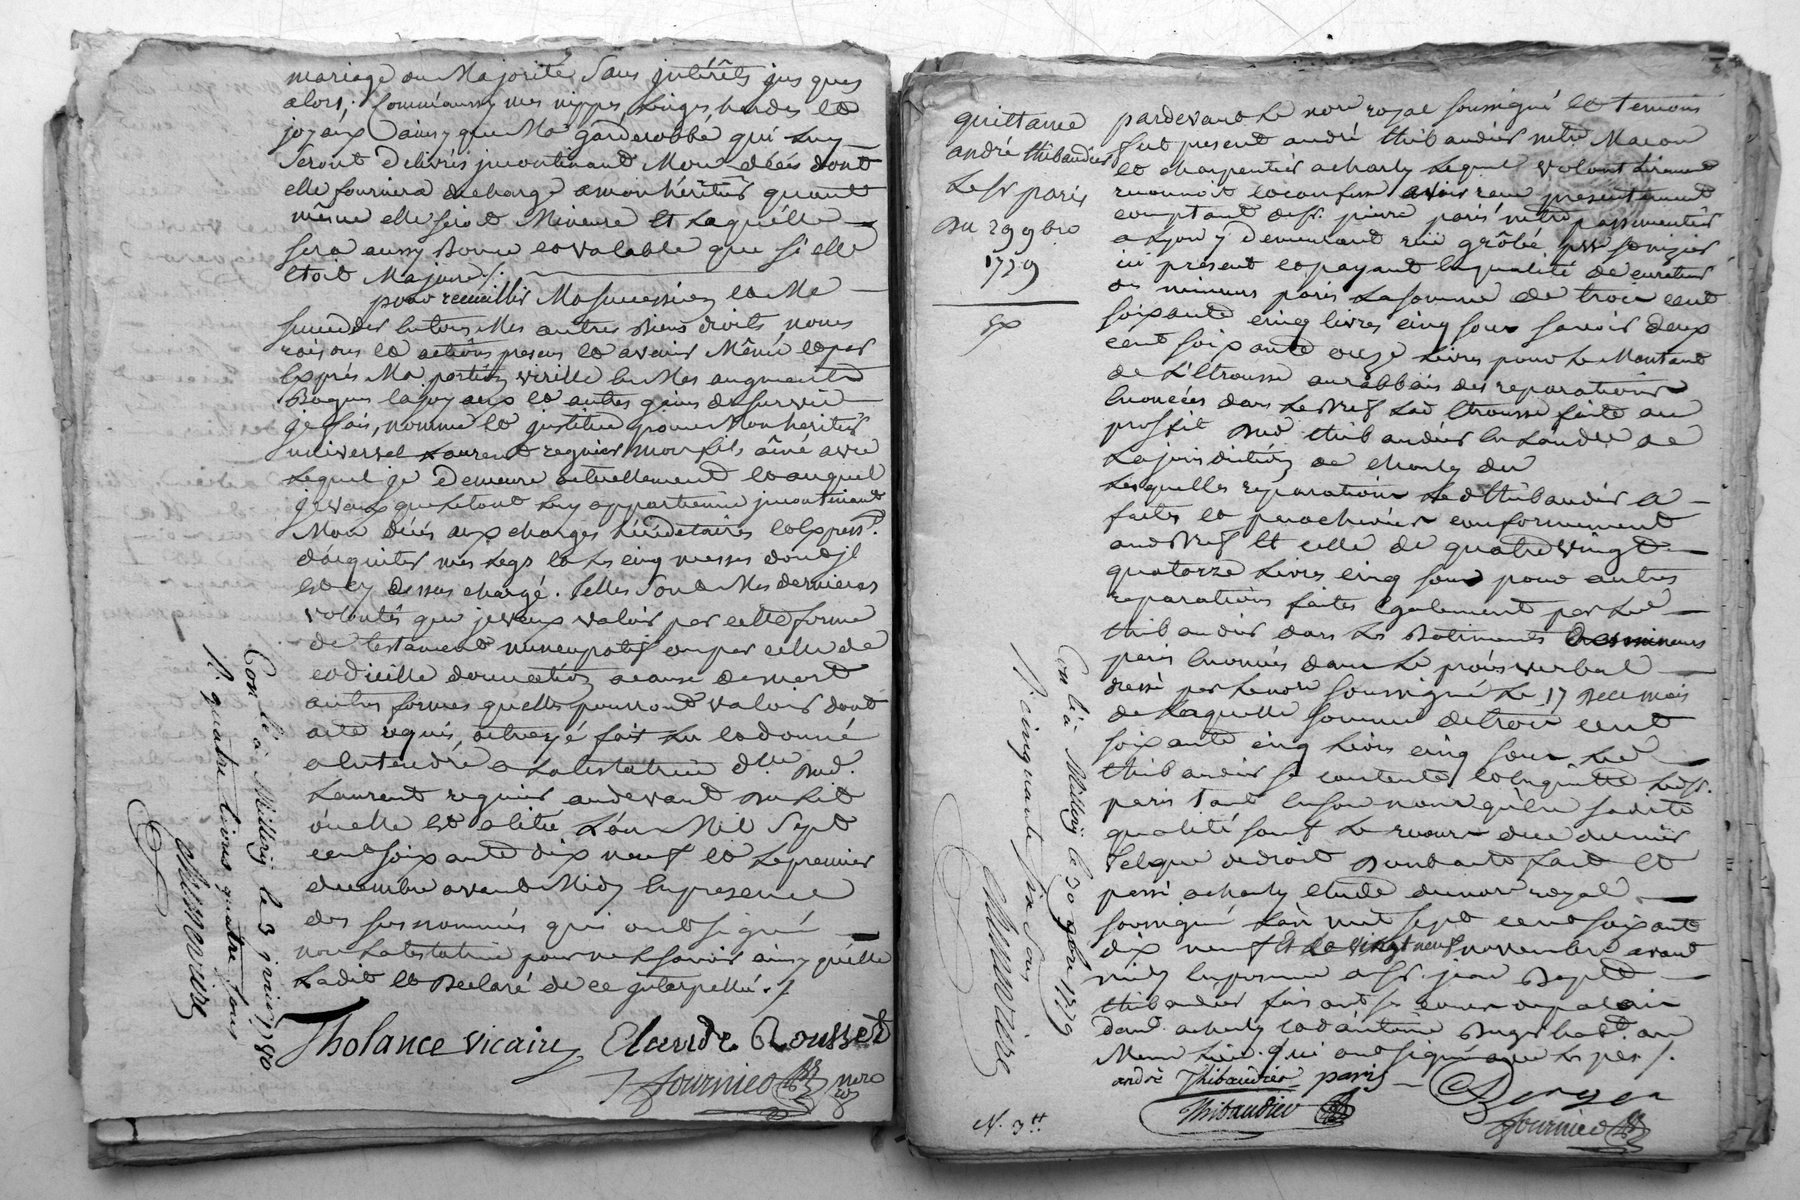 mariage ou Majorité, Sans jntérêts jus ques
alors, Commeaussy mes nippes, Linges, hardes et
joyaux, ainsy que Ma garderobbe, qui Luy
Seront Delivrés jncontinant Mon décés dont
elle fournira décharge a mon héritier quant
même elle seroit Mineure Et Laquelle
sera aussy Bonne et valable que si elle
Etoit Majeure ./.
pour recuillir Ma succession et Me
succeder En tous Mes autres Biens droits, noms
raisons et actions presens et avenir Même et par
Exprés Ma portion virille En Mes augment
Bagues Et joyaux et autres gains de survie
je fais, nomme et jnstitue pour Mon heritier
universel Laurent regnier mon fils ainé avec
Lequel je Demeure actuellement et auquel
je veux que Letout Luy appartienne jncontinant
Mon décés aux charges héréditaires et Exprés.
dacquiter mes Legs et Les cinq messes dont jl
est cy dessus chargé. Telles Sont Mes dernieres
volontés que je veux valoir par cette forme
de testament nuncupatif ou par celle de
codicille donnation a cause de mort
autres formes quelles pourront valoir dont
acte requis, octroyé fait Lu et donné
a Entendre a La testatrice
Laurent regnier audevant du Lit
ou elle est alitée, L'an Mil Sept
cent soixante dix neuf et Le premier
decembre avant Midy En presence
des susnommés qui ont signé
non La testatrice pour ne Le savoir ainsy qu'elle
L'a dit et Declaré de ce jnterpellée ./.
Tholance vicaire Claude Rousset
fournier
Con.lé à Millery le 3 janvier 1780
R. quatre livres quatre sous
quittance
andré thibaudier
Le sr paris
Du 29 9bre
1779
pardevant Le nore royal soussigné et temoins
fut present andré thibaudier mtre Macon
et charpentier a charly Lequel volontairement
reconnoit et confesse avoir reçu presentement
comptant de sr. pierre paris mtre passmentier
a Lyon y Demeurant rüe grôlée psse St nizier
icy présent et payant En qualité de curateur
des mineurs paris La somme de trois cent
soixante cinq livres cinq sous savoir deux
cent soixante onze Livres pour Le Montant
de L'Etrousse au rabbais des reparations
Enoncées dans Le Bref Lad Etrousse faite au
proffit Dud thibaudier En Laudce de
La jurisdiction de charly du
Lesquelles réparations Led thibaudier a
faites et parachevées conformement
aud Bref Et celle de quatre vingt
quatorze Livres cinq sous pour autres
reparations faites Egalement par Led
thibaudier dans Les Batiments des mineurs
paris Enoncées dans Le procés verbal
dressé par Le nore soussigné Le 17 Dece mois
de Laquelle somme de trois cent
soixante cinq Livres cinq sous Led
thibaudier se contente et En quitte Led sr.
paris tant En son nom qu'En sadite
qualité sauf Le recours de ce dernier
tel que de droit Dont acte fait Et
passé a charly Etude du nore royal
soussigné L'an mil sept cent soixante
dix neuf Et Le vingt neuf novembre avant
midy En presence de sr. jean Bapte
thibaudier
a charly et d'antoine au
Meme Lieu qui ont signé avec Les par ./.
andré Thibaudier paris
Thibaudier
fournier
Con.lé à Millery le 30 9bre 1779
R. cinquante six sous
N. 3 tt